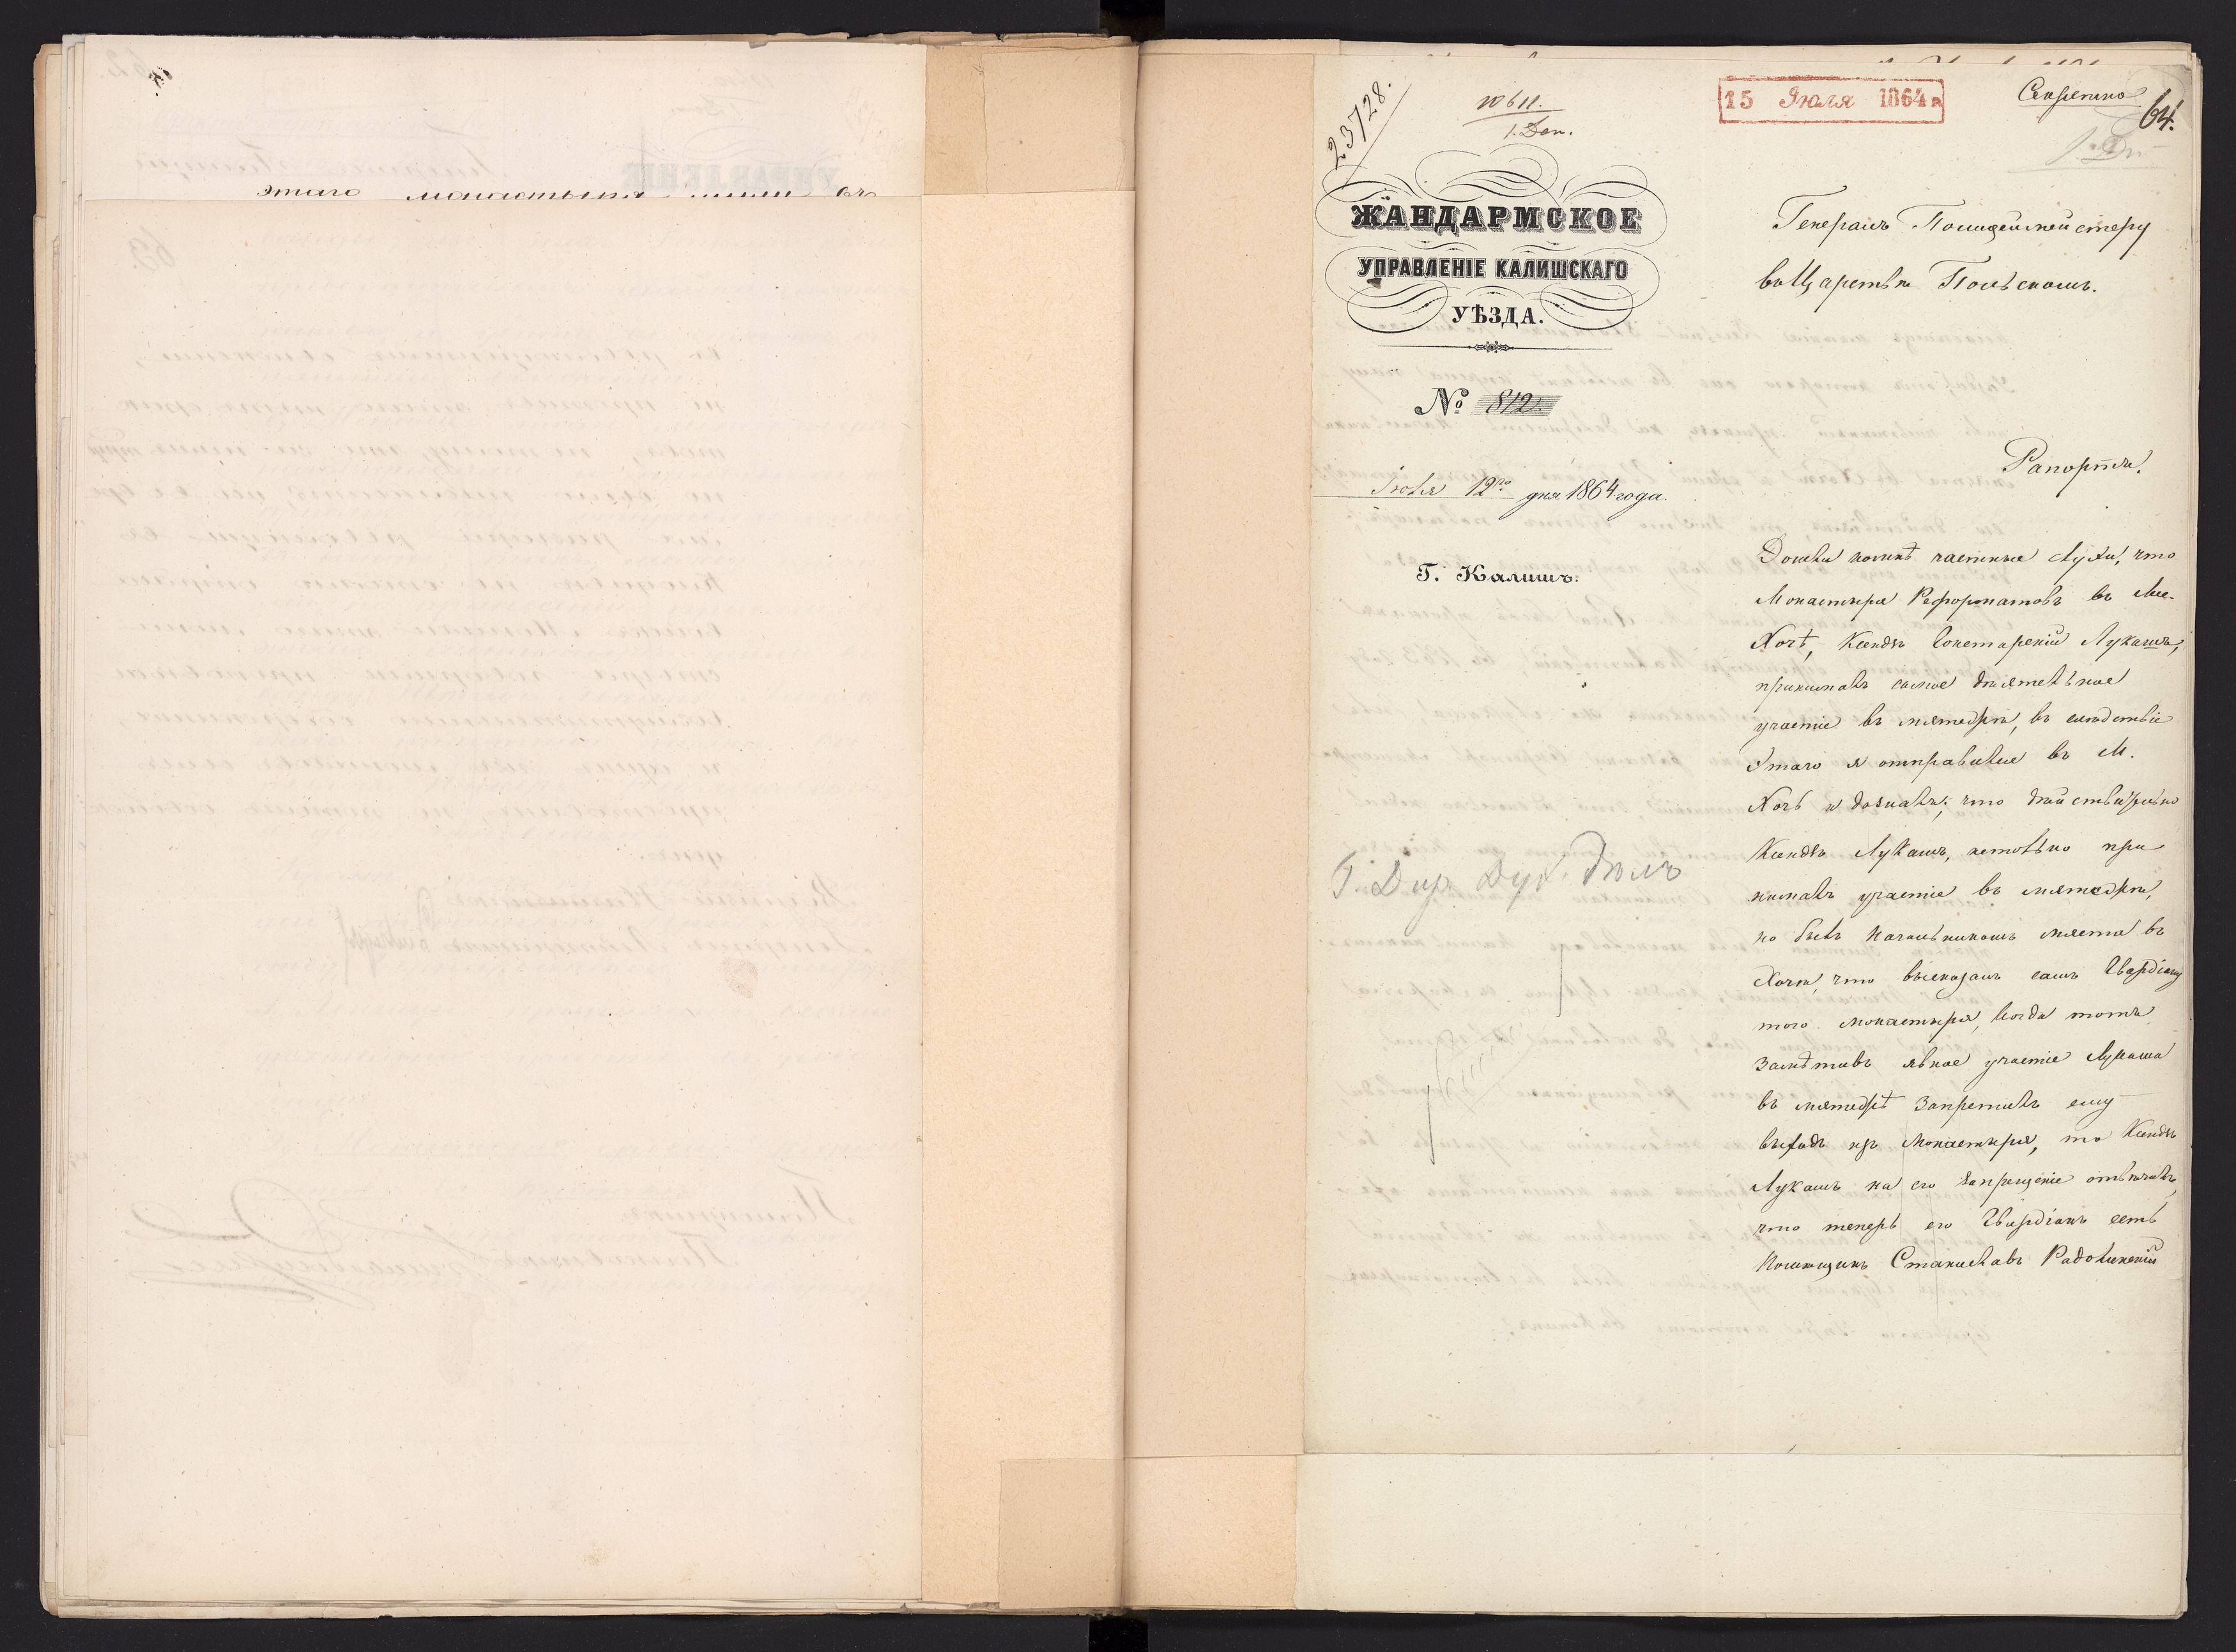 этаго монастыря
23728.
10611.
1. Деп.
15 Июля 1864 г
Секретно
64.
ЖАНДАРМСКОЕ
УПРАВЛЕНІЕ КАЛИШСКАГО
УѢЗДА.
№ 812.
Июля 12го дня 1864 года.
Г. Калишъ.
Г. Дир. Дух. Дѣлъ
Генералъ Полицеймейстеру
въ Царствѣ Польскомъ.
Рапортъ.
Дошли комнѣ частные слухи, что
Монастыря Реформатовъ въ Ме.
Хочѣ, Ксендзъ Лукашъ,
принималъ самое дѣятельное
участіе въ мятежѣ, въ слѣдствіе
этаго я отправился въ М.
Хочъ и дозналъ; что дѣйствительно
Ксендзъ Лукашъ, нетолько при
нималъ участіе въ мятежѣ,
но былъ Начальникомъ мѣста въ
Хочѣ, что высказалъ самъ Гвардіану
того монастыря, когда тотъ
замѣтивъ явное участіе Лукаша
въ мятежѣ запретилъ ему
выходъ изъ Монастыря, то Ксендзъ
Лукашъ на его запрещеніе отвѣчалъ,
что теперь его Гвардіанъ есть
помѣщикъ Станиславъ Радолинскій